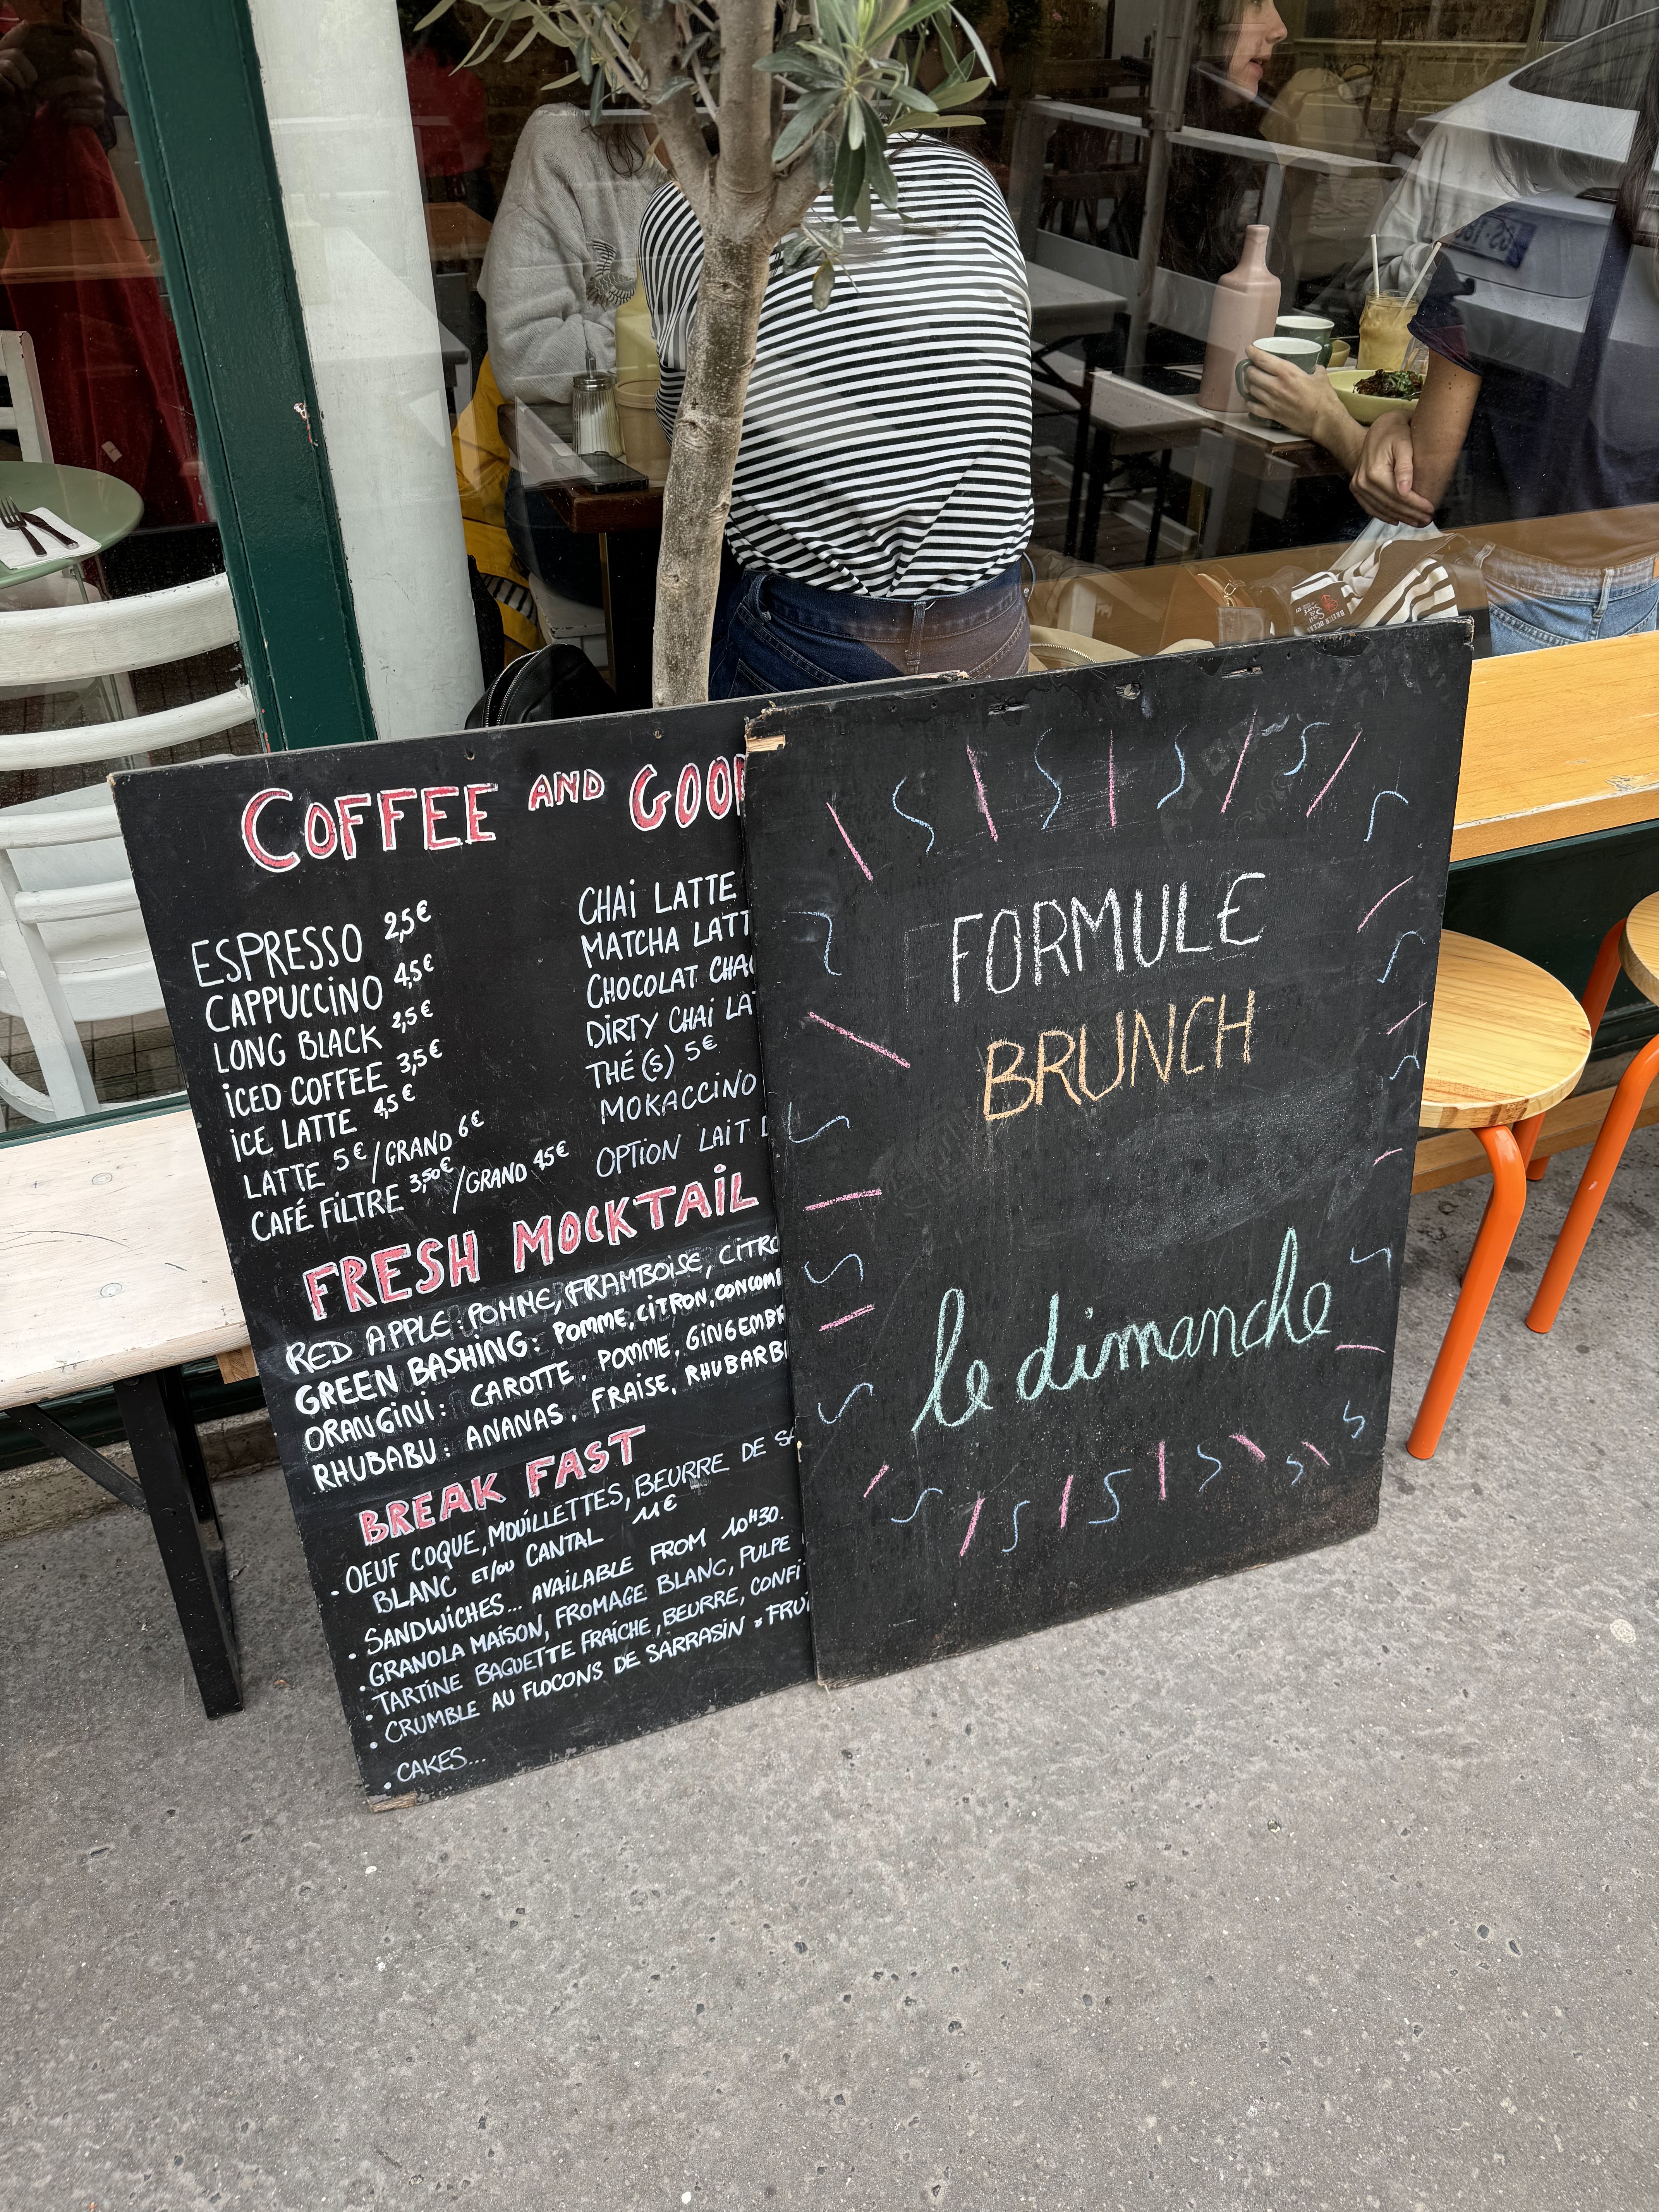 COFFEE AND
ESPRESSO 2,5€
CAPPUCCINO 4,5€
LONG BLACK 2,5€
ICED COFFEE 3,5€
ICE LATTE 4,5€
LATTE 5€/GRAND 6€
CAFÉ FILTRE 3,50€/GRAND 4,5€
CHAI LATTE
MATCHA LATT
CHOCOLAT CHA
DIRTY CHAI LA
THÉ(S) 5€
MOKACCINO
OPTION LAIT
FRESH MOCKTAIL
RED APPLE: POMME, FRAMBOISE, CITRO
GREEN BASHING: POMME, CITRON, CONCOM
ORANGINI: CAROTTE, POMME, GINGEMBR
RHUBABU: ANANAS, FRAISE, RHUBARB
BREAK FAST
• OEUF COQUE, MOUILLETTES, BEURRE DE
BLANC ET/OU CANTAL 11€
• SANDWICHES... AVAILABLE FROM 10H30.
• GRANOLA MAISON, FROMAGE BLANC, PULPE
• TARTINE BAGUETTE FRAÎCHE, BEURRE, CONFI
• CRUMBLE AU FLOCONS DE SARRASIN & FRU
• CAKES...
FORMULE
BRUNCH
le dimanche